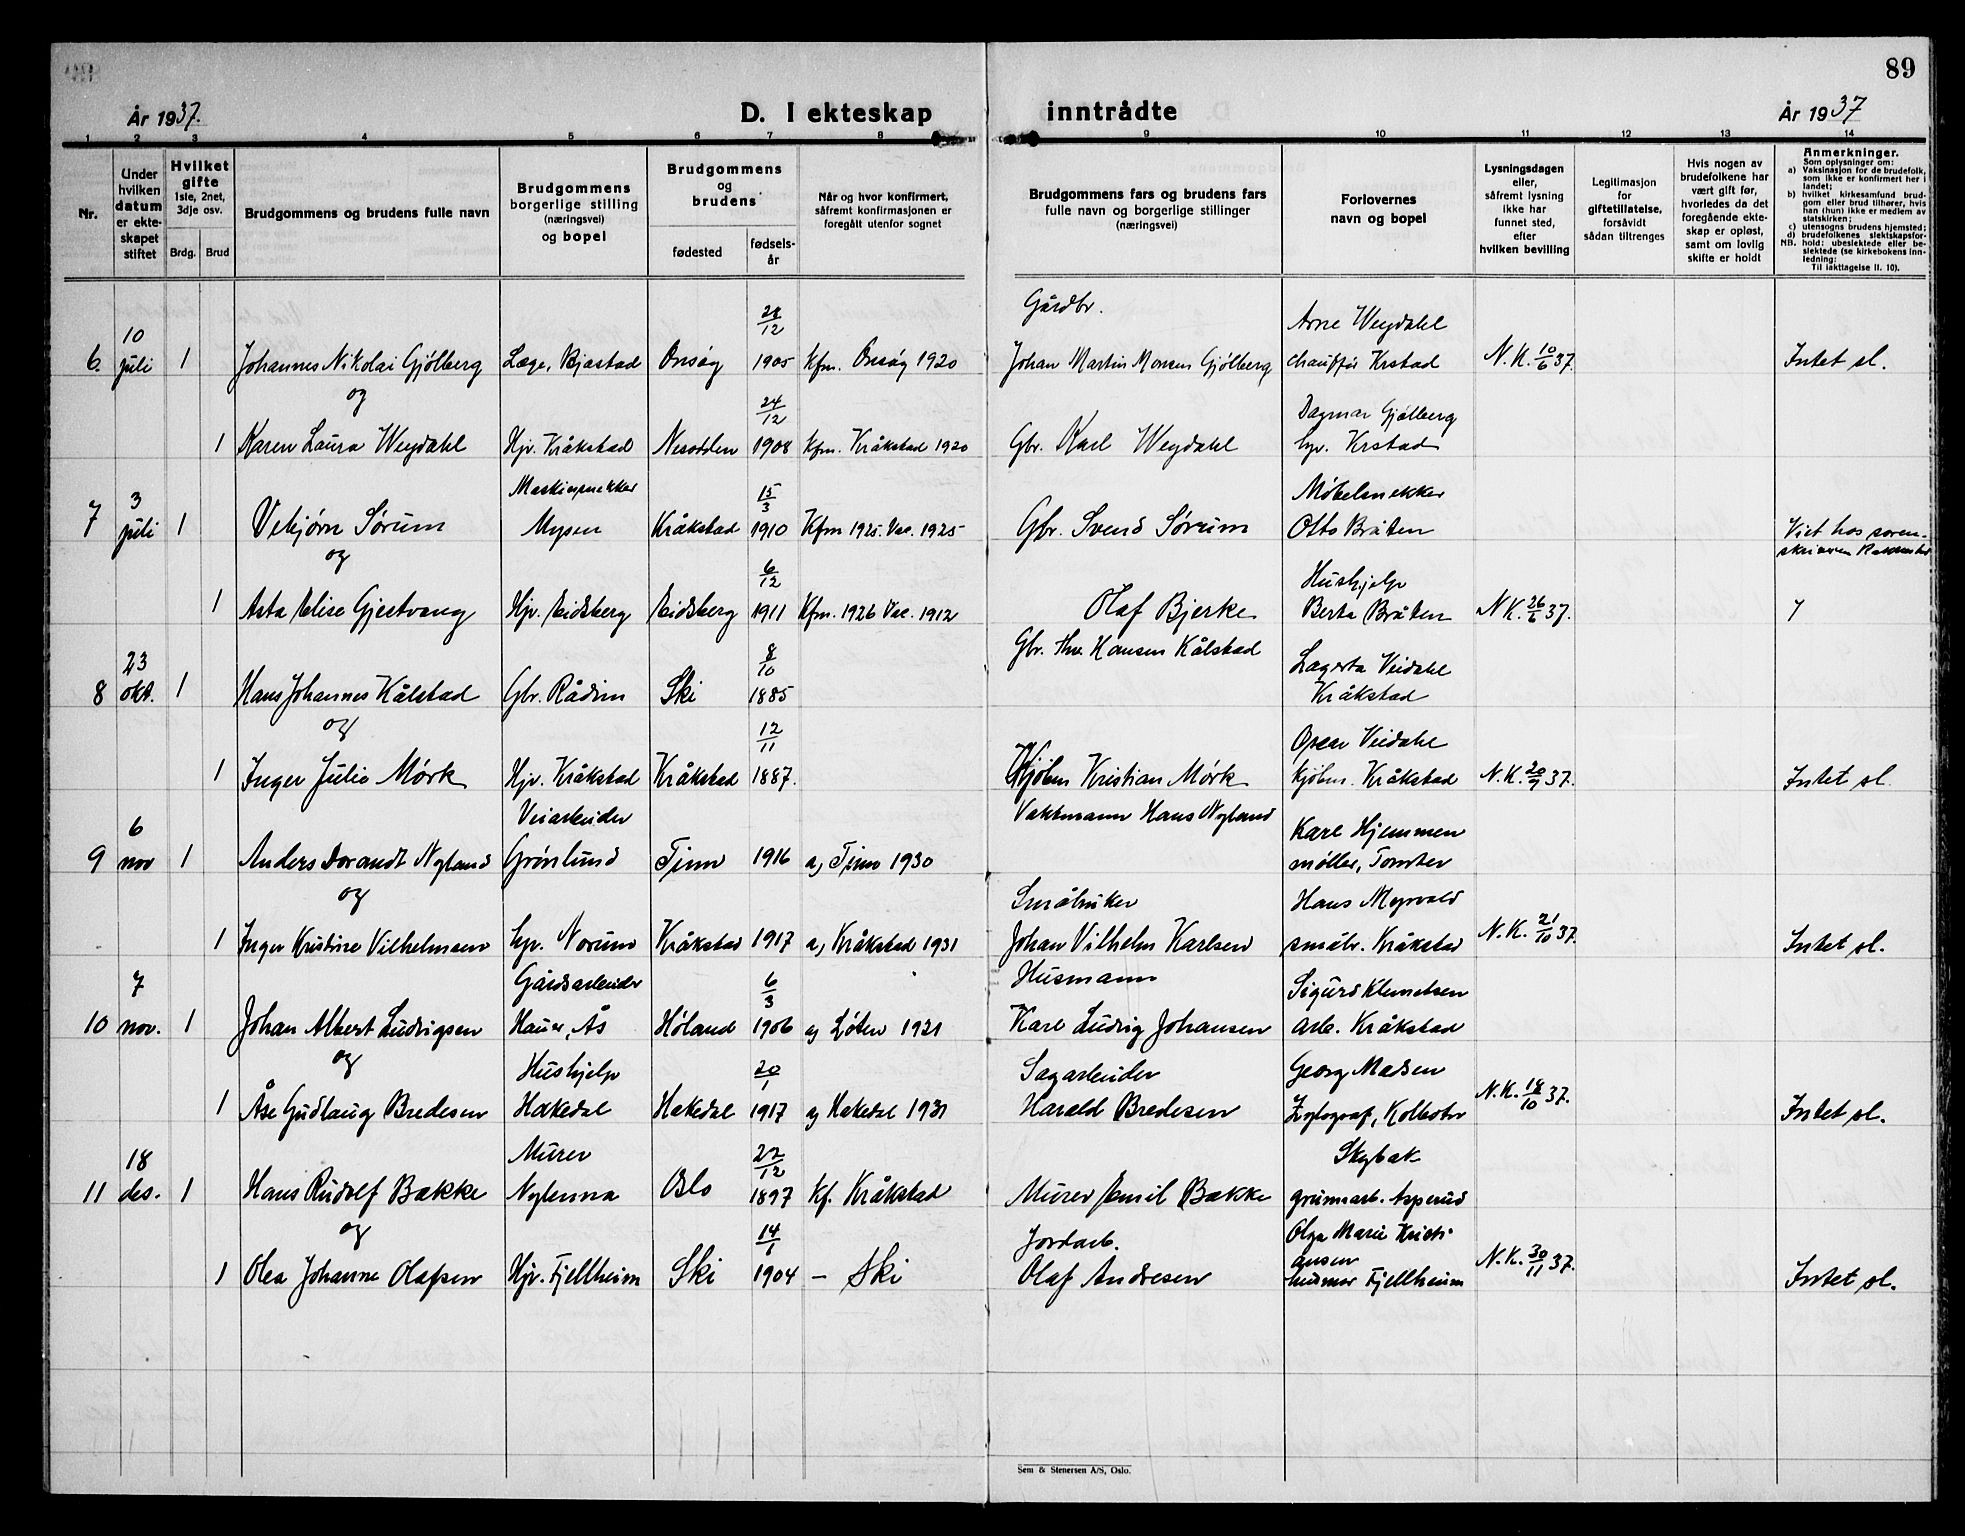 89
År 1937.
D. I ekteskap inntrådte
År 1937
1 2 3 4 5 6 7 8 9 10 11 12 13 14
Nr.
Under hvilken datum er ekteskapet stiftet
Hvilket gifte 1ste, 2net, 3dje osv.
Brdg. Brud
Brudgommens og brudens fulle navn
Brudgommens borgerlige stilling (næringsvei) og bopel
Brudgommens og brudens
fødested
fødselsår
Når og hvor konfirmert, såfremt konfirmasjonen er foregått utenfor sognet
Brudgommens fars og brudens fars fulle navn og borgerlige stillinger (næringsvei)
Forlovernes navn og bopel
Lysningsdagen eller, såfremt lysning ikke har funnet sted, efter hvilken bevilling
Legitimasjon for giftetillatelse, forsåvidt sådan tiltrenges
Hvis nogen av brudefolkene har vært gift før, hvorledes da det foregående ekteskap er opløst, samt om lovlig skifte er holdt
Anmerkninger.
Som oplysninger om:
a) Vaksinasjon for de brudefolk, som ikke er konfirmert her i landet;
b) hvilket kirkesamfund brudgom eller brud tilhører, hvis han (hun) ikke er medlem av statskirken;
c) utensogns brudens hjemsted;
d) brudefolkenes slektskapsforhold: ubeslektede eller beslektede (se kirkebokens innledning:
NB.
Til iakttagelse II. 10).
6. 10 juli 1 Johannes Nikolai Gjølberg Læge, Bjastad Onsøy 28/12 1905 Kfm. Onsøy 1920 Gårdbr. Johan Martin Monsen Gjølberg Arne Weydahl chauffør Krstad N.K. 10/6 37. Intet sl.
og
1 Karen Laura Weydahl Hjv. Kråkstad Nesodden 24/12 1908 Kfm. Kråkstad 1920 Gbr. Karl Weydahl Dagmar Gjølberg hjv. Krstad
7 3 juli 1 Vebjørn Sørum Maskinsnekker Mysen Kråkstad 15/3 1910 Kfm 1925. Vac. 1925 Gbr. Svend Sørum Møbelsnekker Otto Bråten Viet hos sorenskriveren
og
1 Asta Elise Gjestvang Hjv. Eidsberg Eidsberg 6/12 1911 Kfm. 1926 Vac. 1912 Olaf Bjerke Hushjelp Berta Bråten N.K. 26/6 37.
8 23 okt. 1 Hans Johannes Kålstad Gbr. Rådim Ski 8/10 1885 Gbr. Hansen Kålstad Lagerta Veidahl Kråkstad
og
1 Inger Julie Mørk Hjv. Kråkstad Kråkstad 12/11 1887. Kjøbm Kristian Mørk Oscar Veidahl kjøbm. Kråkstad N.K. 20/9 37. Intet sl.
9 6 nov 1 Anders Dorandt Nyland Veiarbeider Grønlund Tinn 1916 a, Tinn 1930 Vaktmann Hans Nyland Karl Hjemmen møller, Tomter
og
1 Inger Kristine Vilhelmsen hjv. Norum Kråkstad 1917 a, Kråkstad 1931 Småbruker Johan Vilhelm Karlsen Hans Myrvold småbr. Kråkstad N.K. 21/10 37. Intet sl.
10 7 nov. 1 Johan Albert Ludvigsen Gårdsarbeider Haug, Ås Høland 6/3 1906 a, Løten 1921 Husmann Karl Ludvig Johansen Sigurd Klemetsen arb. Kråkstad
og
1 Åse Gudlaug Bredesen Hushjelp Hakedal Hakedal 20/1 1917 a, Hakedal 1931 Sagarbeider Harald Bredesen Georg Madsen Xylograf, Kolbotn N.K. 18/10 37. Intet sl.
11 18 des. 1 Hans Rudolf Bække Murer Nylenna Oslo 22/12 1897 Kf. Kråkstad Murer Emil Bække Skybak grunnarb. Asperud
og
1 Olea Johanne Olafsen Hjv. Fjellheim Ski 14/1 1904 – Ski Jordarb. Olaf Andresen Olga Marie Kristiansen husmor Fjellheim N.K. 30/11 37. Intet sl.
Sem & Stenersen A/S, Oslo.